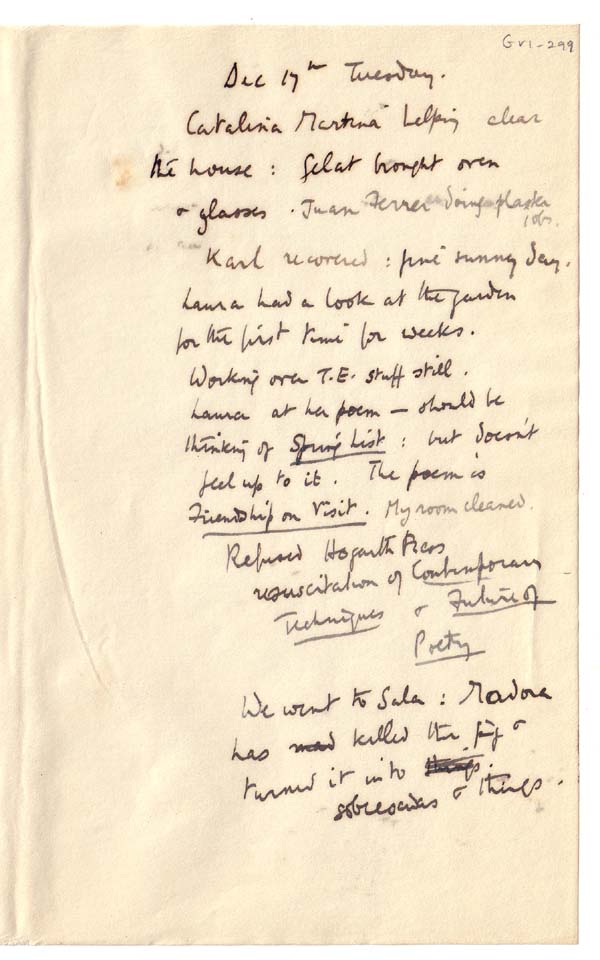 GVI-299
Dec 17th Tuesday.
Catalina Martina helping clear
the house : Gelat brought oven
& glasses . Juan Ferrer doing plaster
jobs.
Karl recovered : fine sunny day.
Laura had a look at the garden
for the first time for weeks.
Working over T.E. stuff still.
Laura at her poem — should be
thinking of Spring List : but doesn't
feel up to it. The poem is
Friendship on Visit. My room cleaned.
Refused Hogarth Press
resuscitation of Contemporary
Techniques & Future of
Poetry
We went to Sala : Madora
has killed the pig &
turned it into things.
sobresadas & things.